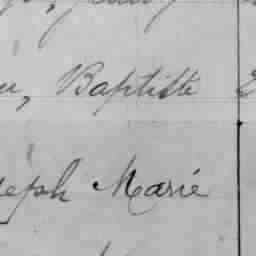 u, Baptiste
seph Marie